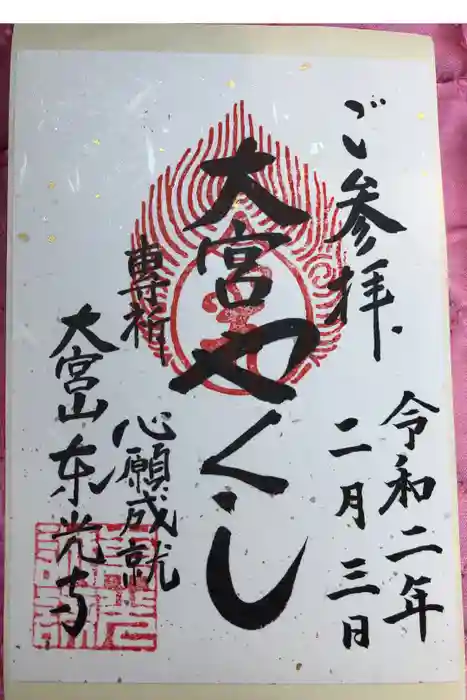 ご参拝
令和二年
二月三日
大宮やくし
專祈
心願成就
大宮山东光寺